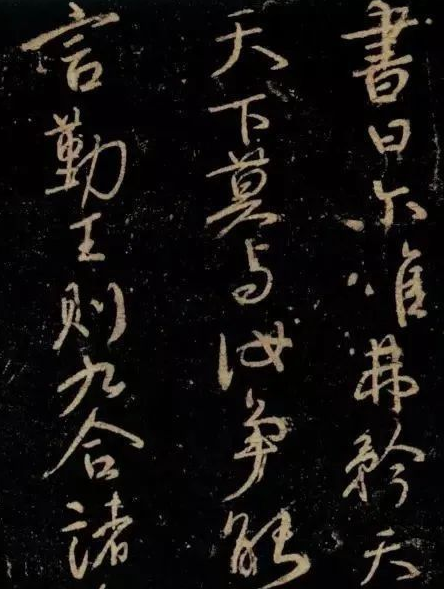 書曰尓唯弗矜天
天下莫与汝爭能
言勤王則九合諸